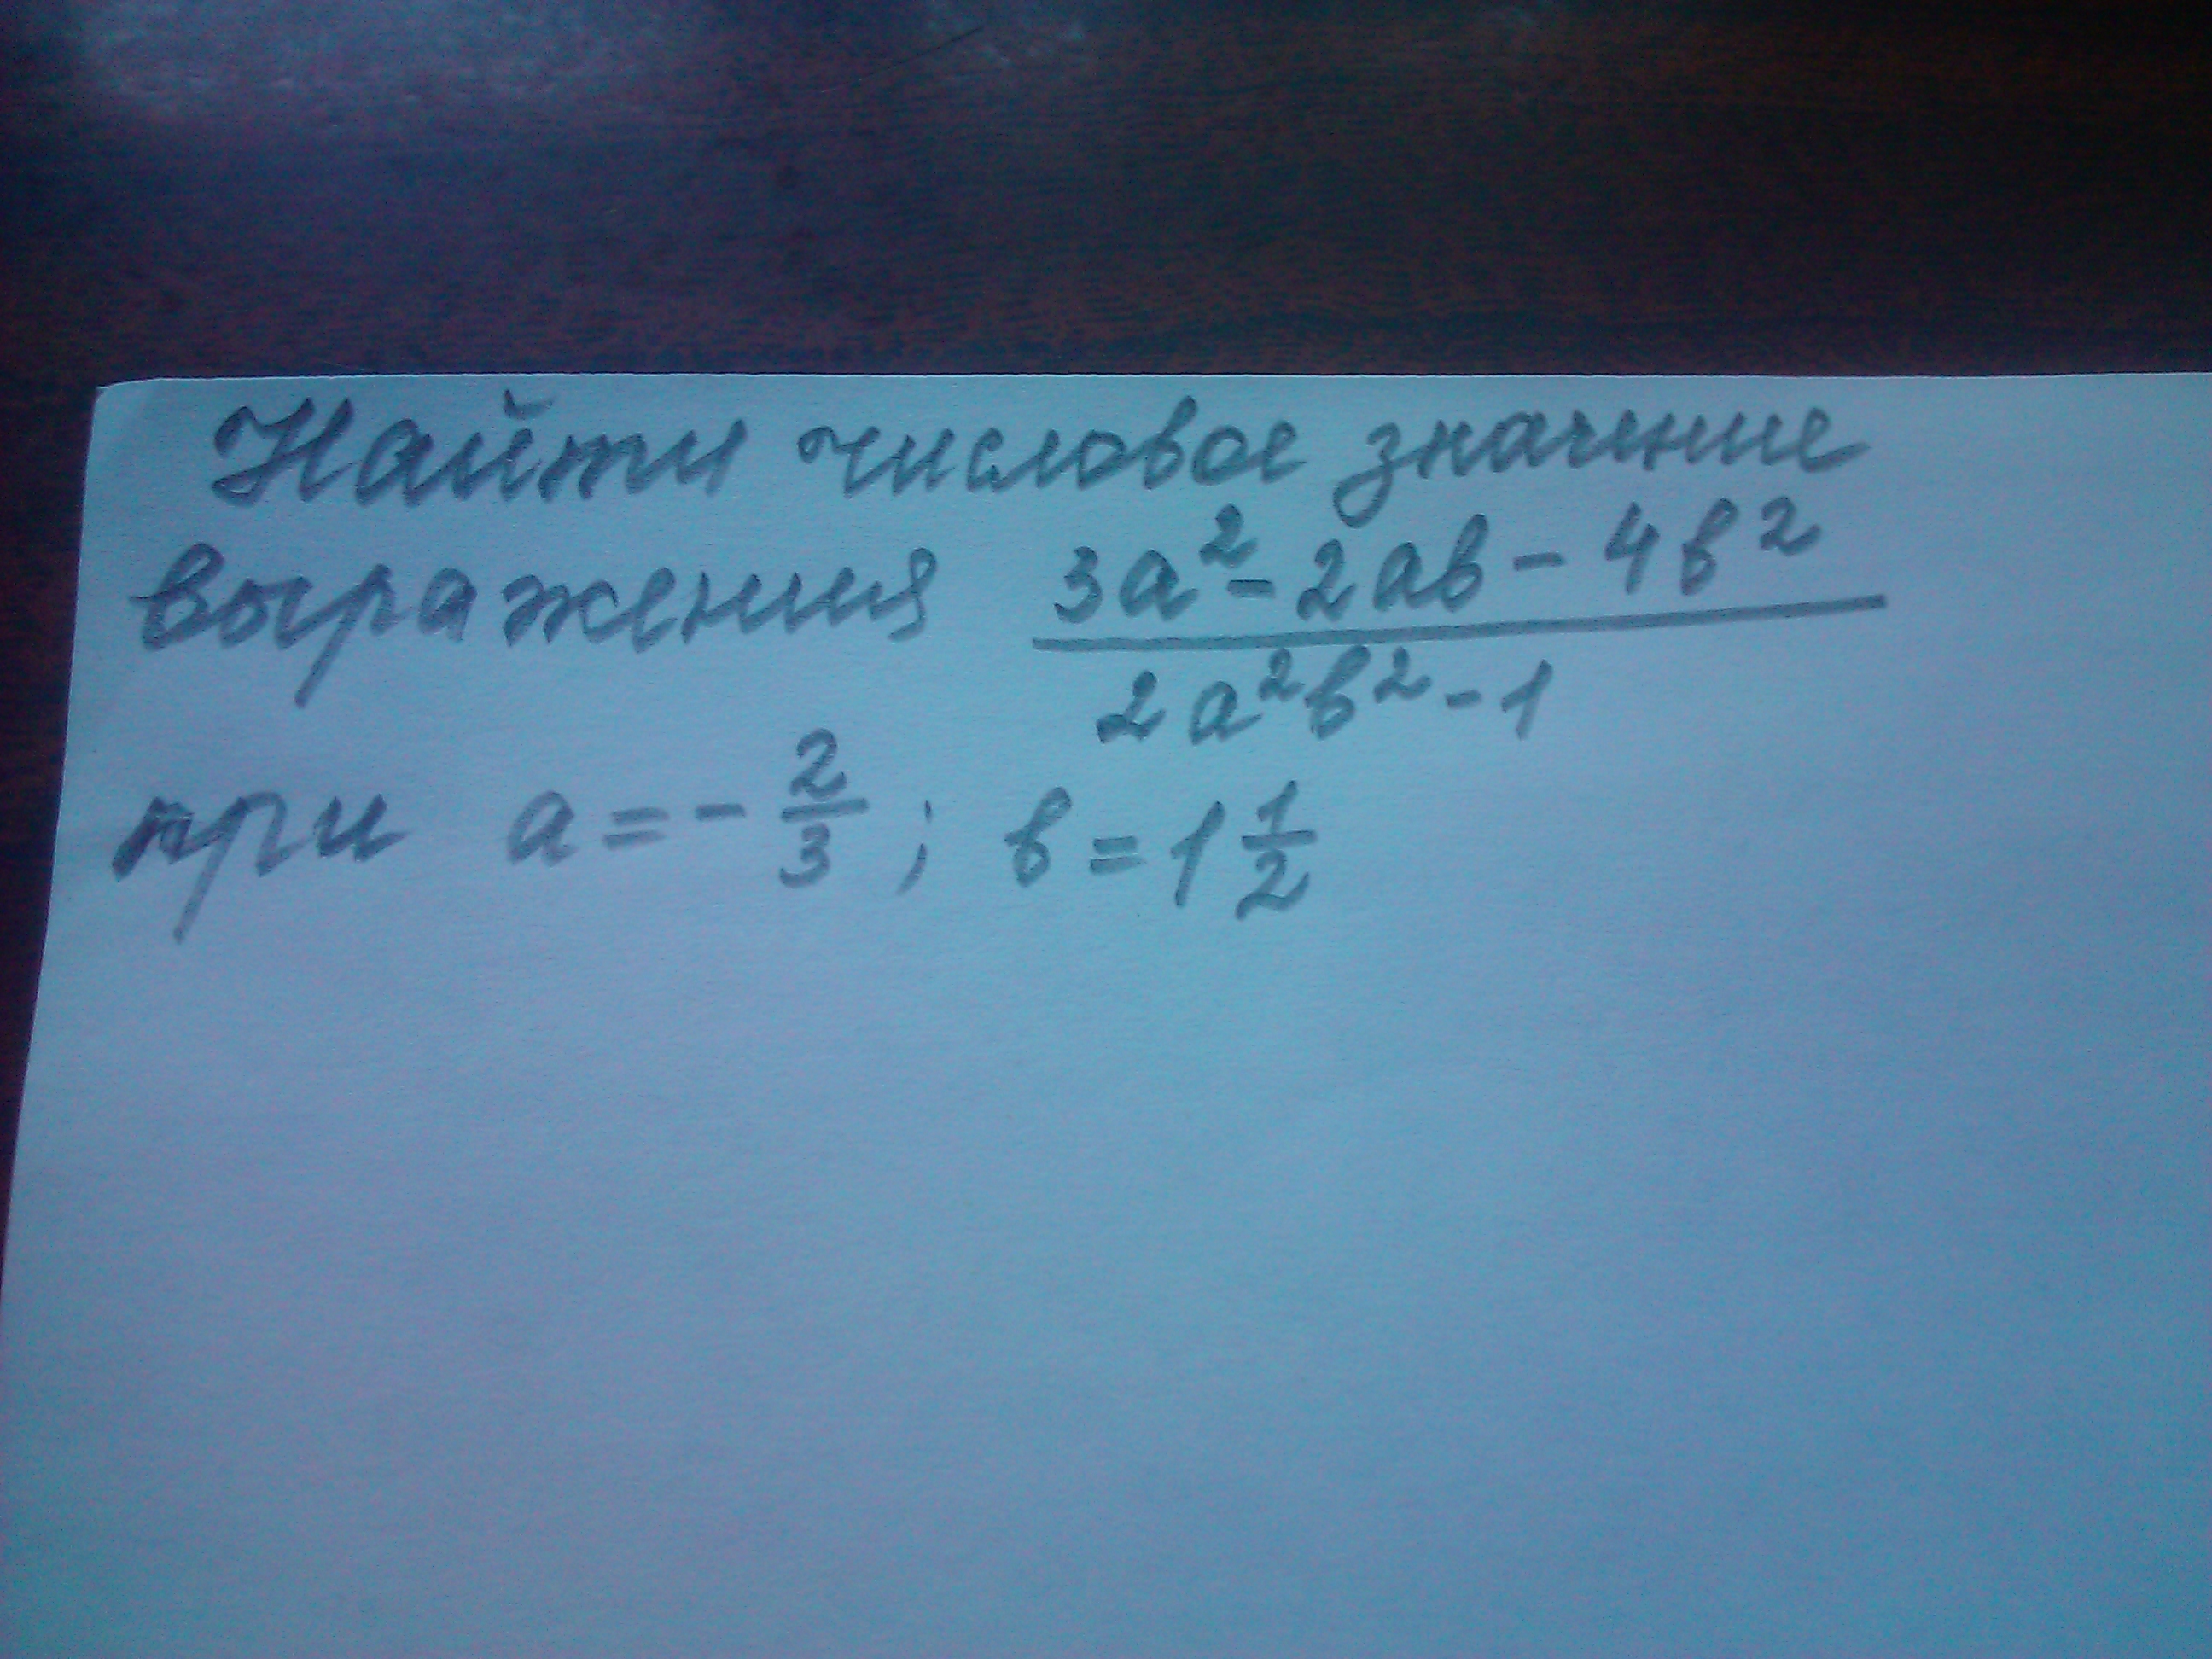 Найти числовое значение
выражения (3a² - 2ab - 4b²) / (2a²b² - 1)
при a = - 2/3 ; b = 1 1/2